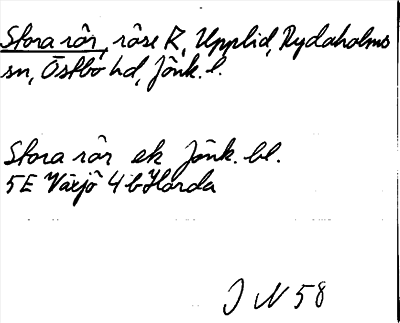 Stora rör, röse R, Upplid, Rydaholms
sn, Östbo hd, Jönk. l.
Stora rör ek Jönk. bl.
5E Växjö 4 b Horda
J N 58